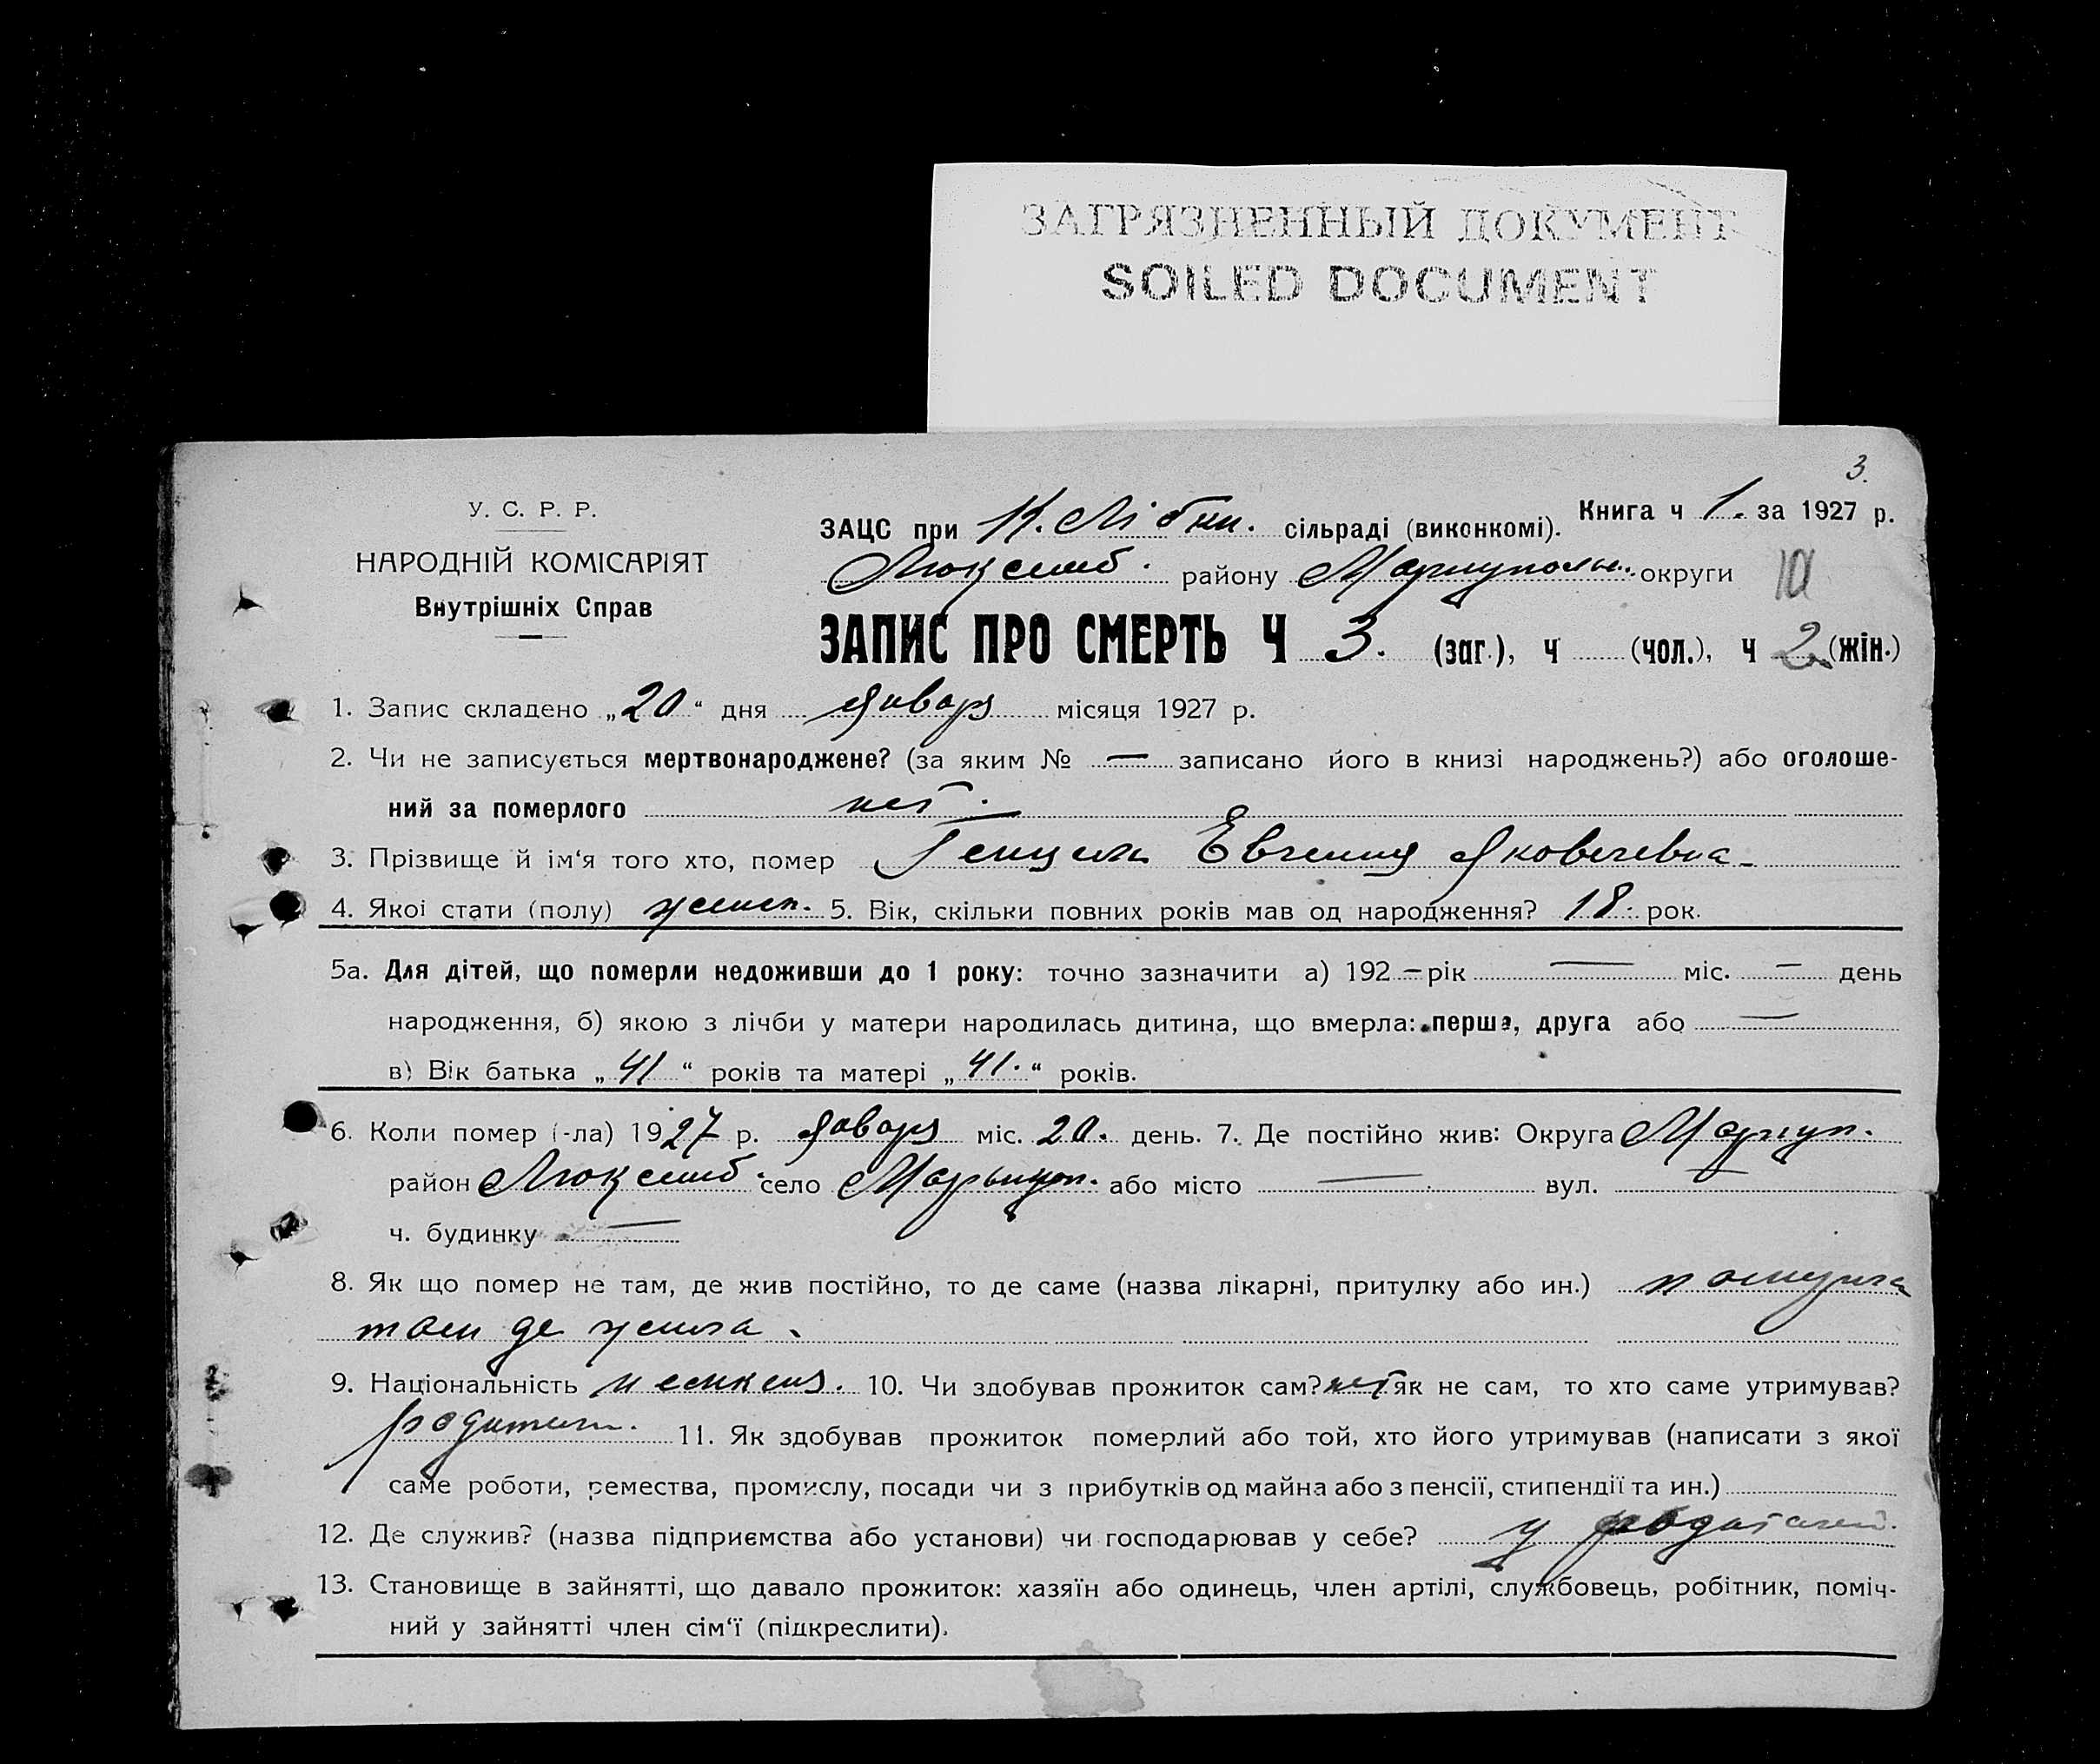 ЗАГРЯЗНЕННЫЙ ДОКУМЕНТ
SOILED DOCUMENT
3.
У. С. Р. Р.
НАРОДНІЙ КОМІСАРІЯТ
Внутрішніх Справ
ЗАЦС при К. Лібкн. сільраді (виконкомі). Книга ч 1. за 1927 р.
Люксемб. району Мариуполь. округи 10
ЗАПИС ПРО СМЕРТЬ Ч 3. (заг.), ч (чол.), ч 2 (жін.)
1. Запис складено „20“ дня января місяця 1927 р.
2. Чи не записується мертвонароджене? (за яким № — записано його в книзі народжень?) або оголоше-
ний за померлого нет.
3. Прізвище й ім‘я того хто, помер Евгения Яковлевна
4. Якоі стати (полу) женск. 5. Вік, скільки повних років мав од народження? 18. рок.
5а. Для дітей, що померли недоживши до 1 року: точно зазначити а) 192 – рік — міс. — день
народження, б) якою з лічби у матери народилась дитина, що вмерла: перша, друга або —
в) Вік батька „41“ років та матері „41.“ років.
6. Коли помер (-ла) 1927 р. января міс. 20. день. 7. Де постійно жив: Округа Мариуп.
район Люксемб. село або місто — вул. —
ч. будинку —
8. Як що помер не там, де жив постійно, то де саме (назва лікарні, притулку або ин.)
там де жила.
9. Національність немкеня. 10. Чи здобував прожиток сам? нет як не сам, то хто саме утримував?
родители. 11. Як здобував прожиток померлий або той, хто його утримував (написати з якої
саме роботи, ремества, промислу, посади чи з прибутків од майна або з пенсії, стипендії та ин.)
12. Де служив? (назва підприємства або установи) чи господарював у себе? у родителей.
13. Становище в зайнятті, що давало прожиток: хазяїн або одинець, член артілі, службовець, робітник, поміч-
ний у зайнятті член сім‘ї (підкреслити).